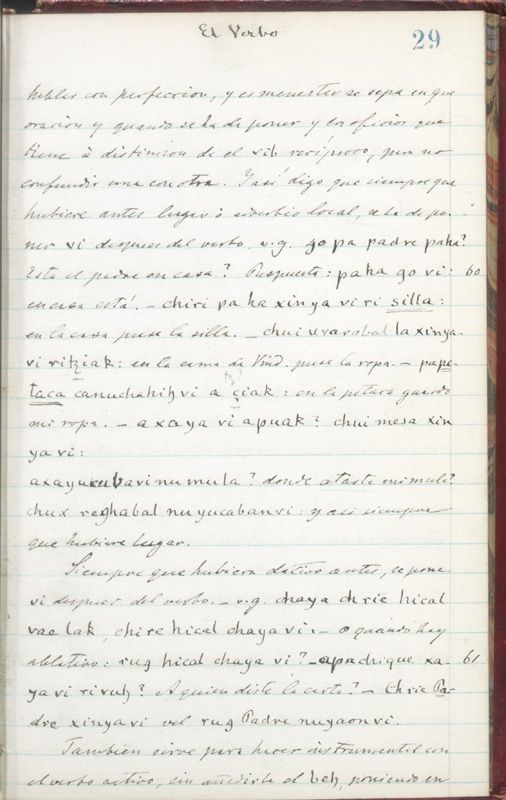 El Verbo
29
hablar con perfeccion, y es menester se sepa en que
oracion y quando se ha de poner y los oficios que
tiene à distincion de el vib reciproco, para no
confundir una con otra. Y asi digo que siempre que
hubiere antes lugar ò adverbio local, se ha de po-
ner vi despues del verbo. v.g. go pa padre paha?
Està el padre en casa? Respuesta: paha go vi: 60
en casa está. – chiri pa ha xinya vi ri silla:
en la casa puse la silla. – chui uvarabal la xinya-
vi ritziak: en la cama de Vmd. puse la ropa. – pape-
taca canuchahih vi a çiak: en la petaca guardo
mi ropa. – axaya vi apuak? chui mesa xin
ya vi:
axayucubavi nu mula? donde ataste mi mula?
chux reghabal nu yucabanvi: y asi siempre
que hubiere lugar.
Siempre que hubiera dativo antes, se pone
vi despues del verbo. – v.g. chaya chrie hical
vae lak, chire hical chaya vi. – o quando hay
ablativo: rug hical chaya vi? – apachique xa- 61
ya vi ri vuh? A quien diste la carta? – Chrie Pa-
dre xinya vi vel rug Padre nuyaon vi.
Tambien sirve para hacer instrumental con
el verbo activo, sin añadirle el beh, poniendo en